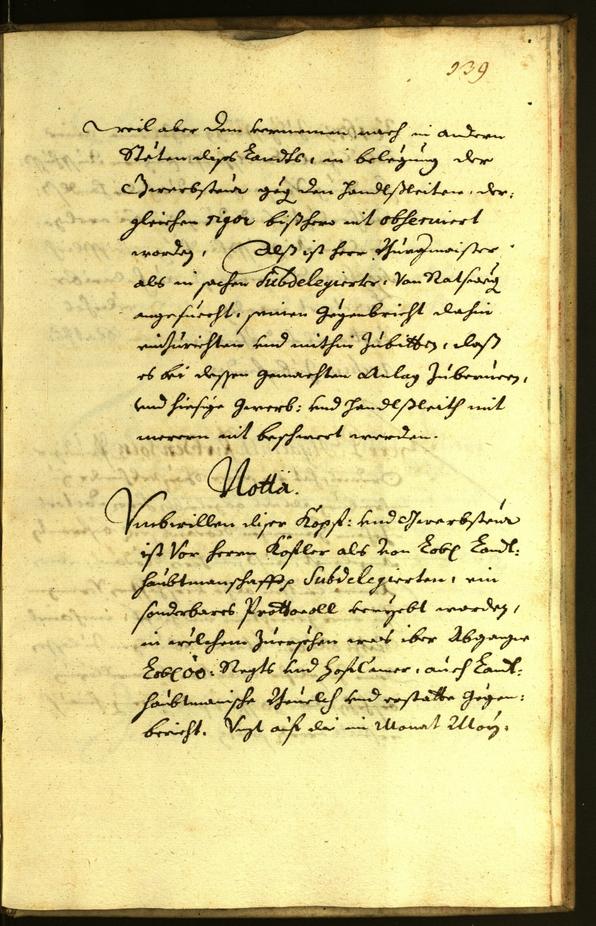 139
weil aber dem vernemen nach in andern
Stäten dises Landts, in belegung der
Gwerbsteur geg den Handlsleiten, der:
gleichen rigor bißhero nit observiert
worden, Alß ist herr Burgmaister
als in sachen Subdelegierter, Von Rathsweg
angesuecht, seinen Gegenbricht dahin
einzurichten und mithin Zubitten, daß
es bei dessen gemachten Anlag Zuberuen,
und hiesige Gwerb: und Handlsleith mit
merern nit beschwert werden.
Notta.
Umbwillen diser Kopf: und Gwerbsteur
ist Vor herrn Kofler als Von Lobl Landt:
haubtmanschafft Subdelegierten, ein
sonderbares Prottocoll
in welchem Zuersehen was iber Abgangne
Lobl OÖ: Regts und HofCamer, auch Landt:
haubtmanische Bevelch und erstatte Gegen:
bericht. im Monat